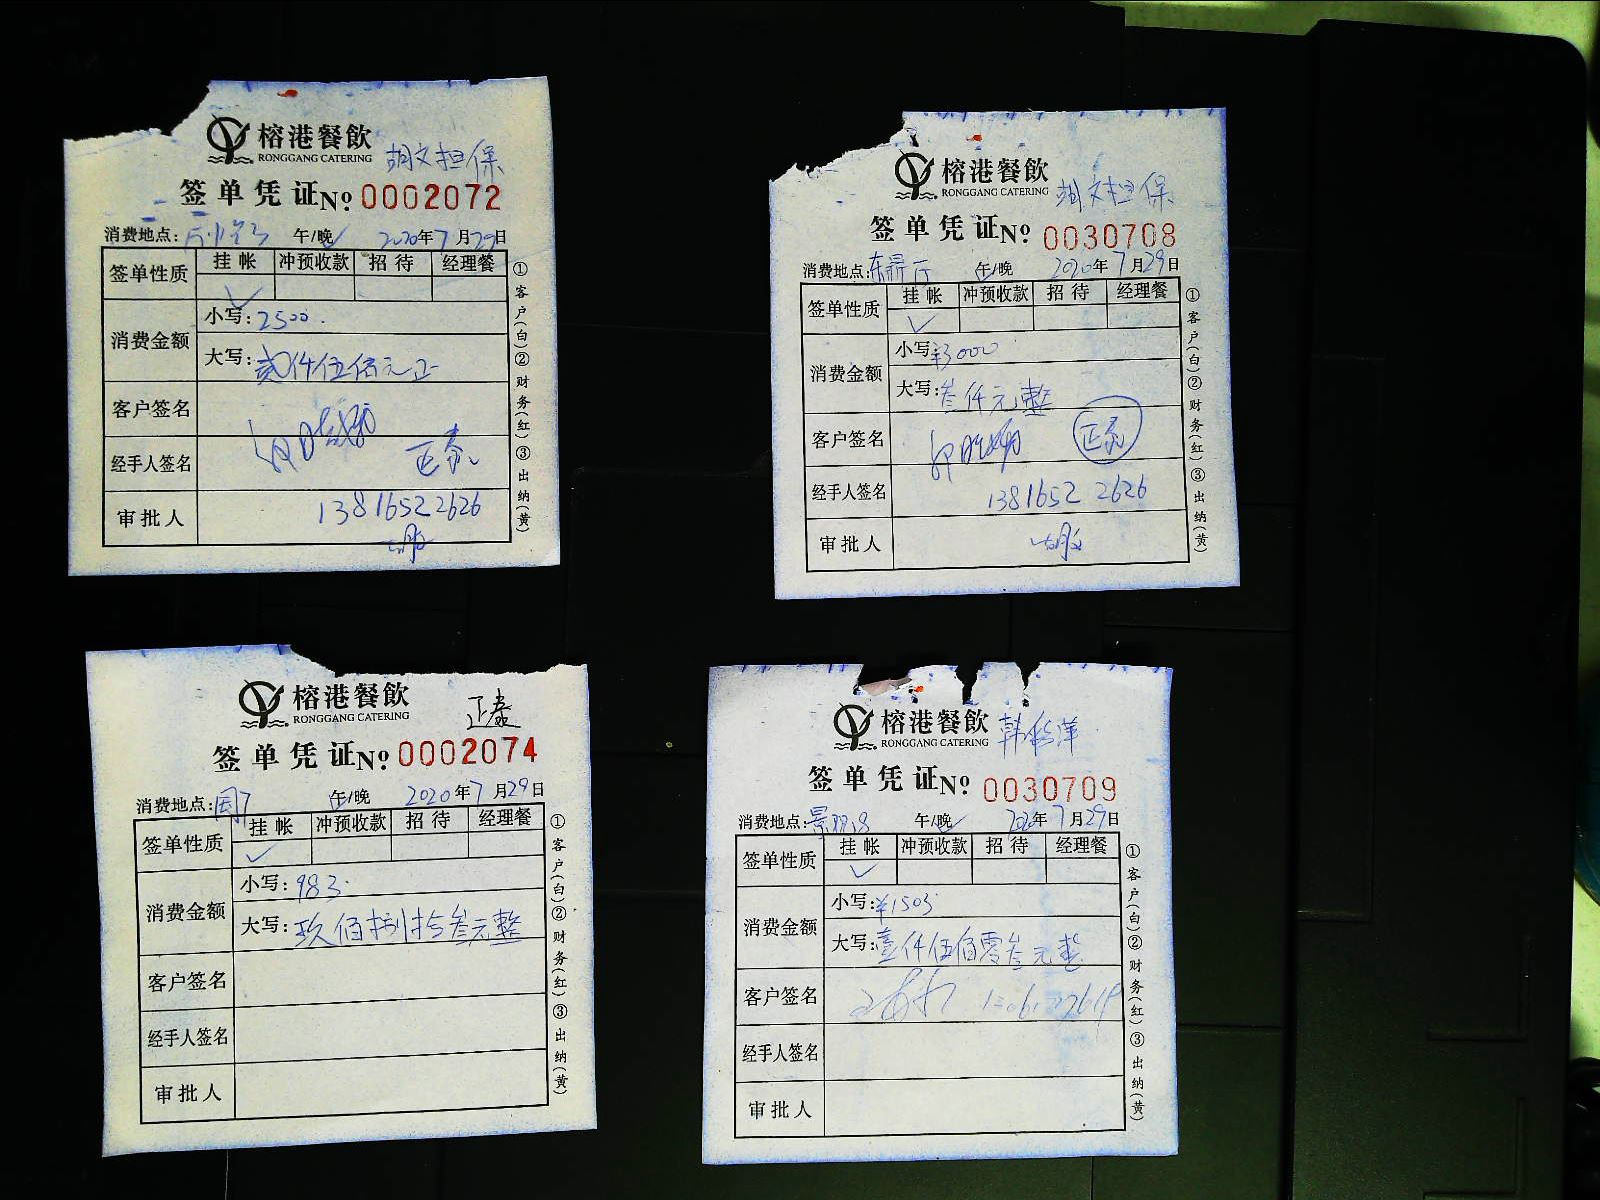 榕港餐飲
RONGGANG CATERING
胡文担保
签单凭证No 0002072
消费地点: 午/晚 2020年7月29日
签单性质 挂帐 冲预收款 招待 经理餐
消费金额 小写: 2500.
大写: 贰仟伍佰元正
客户签名
经手人签名 正泰
审批人 13816522626
①客户(白)②财务(红)③出纳(黄)
榕港餐飲
RONGGANG CATERING
胡文担保
签单凭证No 0030708
消费地点: 厅 午/晚 2020年7月29日
签单性质 挂帐 冲预收款 招待 经理餐
消费金额 小写: ¥3000
大写: 叁仟元整
客户签名 正泰
经手人签名 13816522626
审批人
①客户(白)②财务(红)③出纳(黄)
榕港餐飲
RONGGANG CATERING
正泰
签单凭证No 0002074
消费地点: 午/晚 2020年7月29日
签单性质 挂帐 冲预收款 招待 经理餐
消费金额 小写: 983.
大写: 玖佰捌拾叁元整
客户签名
经手人签名
审批人
①客户(白)②财务(红)③出纳(黄)
榕港餐飲
RONGGANG CATERING
签单凭证No 0030709
消费地点: 午/晚 2020年7月29日
签单性质 挂帐 冲预收款 招待 经理餐
消费金额 小写: ¥1503
大写: 壹仟伍佰零叁元整
客户签名
经手人签名
审批人
①客户(白)②财务(红)③出纳(黄)